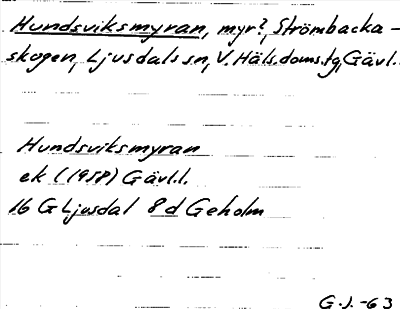 Hundsviksmyran, myr?, Strömbacka-
skogen, Ljusdals sn, V. Häls.doms.tg, Gävl.l.
Hundsviksmyran
ek (1958) Gävl.l.
16 G Ljusdal 8 d Geholm
G.J. -63